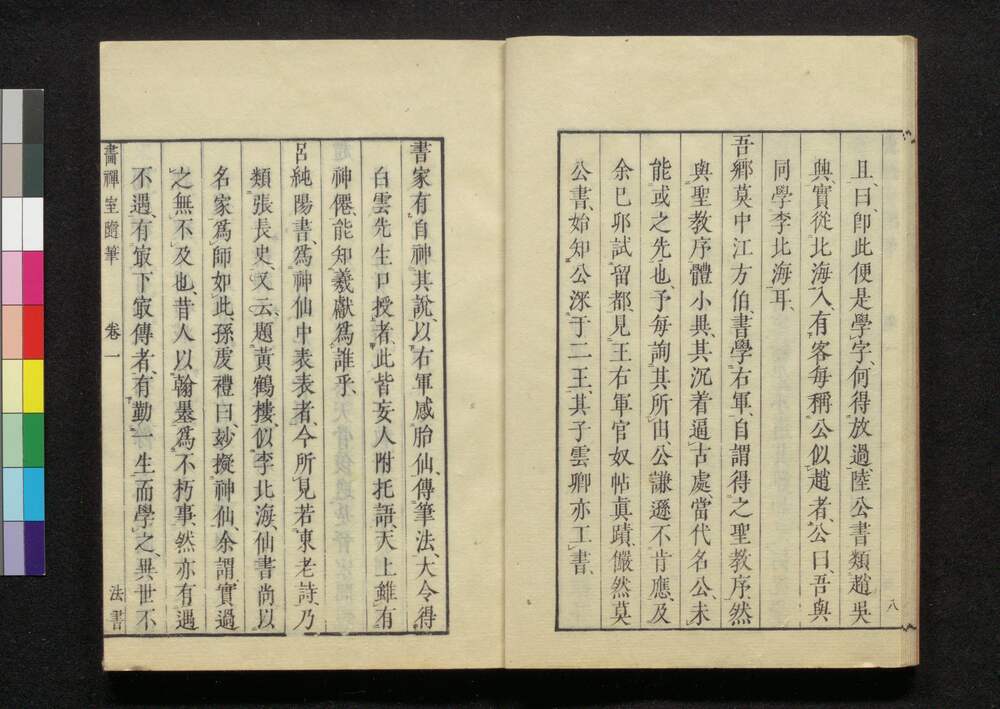 且、曰、卽此便是學字、何得放過、陸公書類趙吳
興、實從北海入、有客每稱公似趙者、公曰、吾與
同學李北海耳、
吾鄉莫中江方伯、書學右軍、自謂得之聖敎序、然
與聖敎序體小異、其沉着逼古處、當代名公、未
能或之先也、予每詢其所由、公謙遜不肯應、及
余已卯試留都、見王右軍官奴帖眞蹟、儼然莫
公書、始知公深于二王、其子雲卿亦工書、
八
書家有自神其說、以右軍感胎仙、傳筆法、大令得
白雲先生口授者、此皆妄人附托語、天上雖有
神僊、能知羲獻爲誰乎、
呂純陽書、爲神仙中表表者、今所見若東老詩、乃
類張長史、又云、題黃鶴樓似李北海、仙書尚以
名家爲師如此、孫虔禮曰、妙擬神仙、余謂實過
之無不及也、昔人以翰墨爲不朽事、然亦有遇
不遇、有㝡下㝡傳者、有勤一生而學之、異世不
畫禪室隨筆 卷一 法書